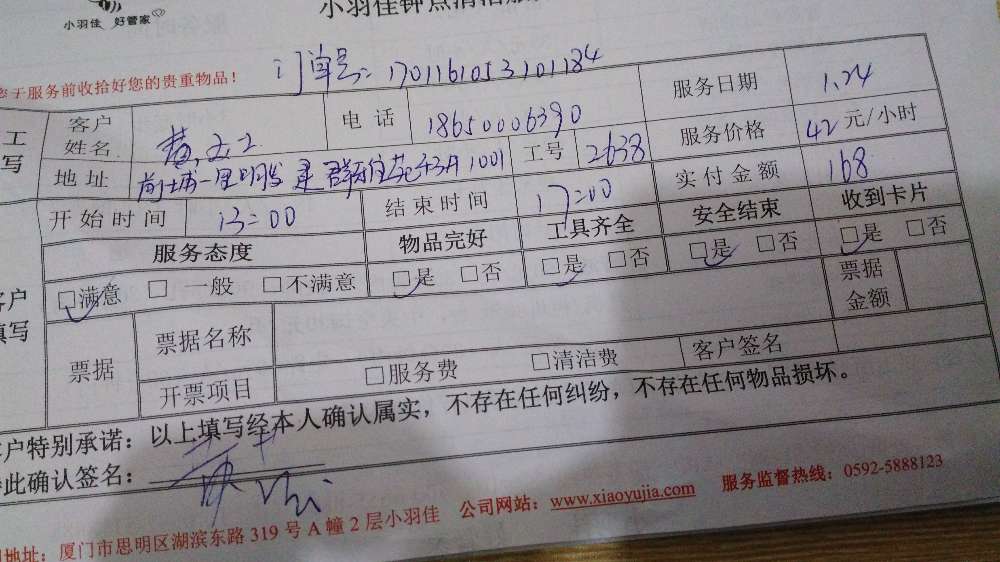 小羽佳 好管家
小羽佳钟点清洁服
于服务前收拾好您的贵重物品!
订单号: 1701161053101184
工
写
客户姓名 黄 电话 18650006390 服务日期 1.24
地址 工号 2638 服务价格 42 元/小时
开始时间 13:00 结束时间 17:00 实付金额 168
客户
填写
服务态度 物品完好 工具齐全 安全结束 收到卡片
□满意 □一般 □不满意 □是 □否 □是 □否 □是 □否 □是 □否
票据 票据名称 票据金额
开票项目 □服务费 □清洁费 客户签名
客户特别承诺:以上填写经本人确认属实,不存在任何纠纷,不存在任何物品损坏。
此确认签名:
地址:厦门市思明区湖滨东路 319 号 A 幢 2 层小羽佳 公司网站:www.xiaoyujia.com 服务监督热线:0592-5888123